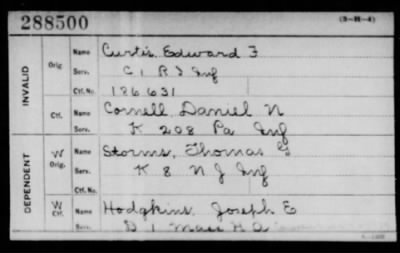 288500 (3-H-4)
INVALID
Orig. Name Curtis, Edward F
Serv. C 1 R I Inf
Ctf. No. 186631
Ctf. Name Cornell, Daniel N
Serv. K 208 Pa Inf
DEPENDENT
W Orig. Name Storms, Thomas G
Serv. K 8 N J Inf
Ctf. No.
W Ctf. Name Hodgkins, Joseph E
Serv. D 1 Mass H A